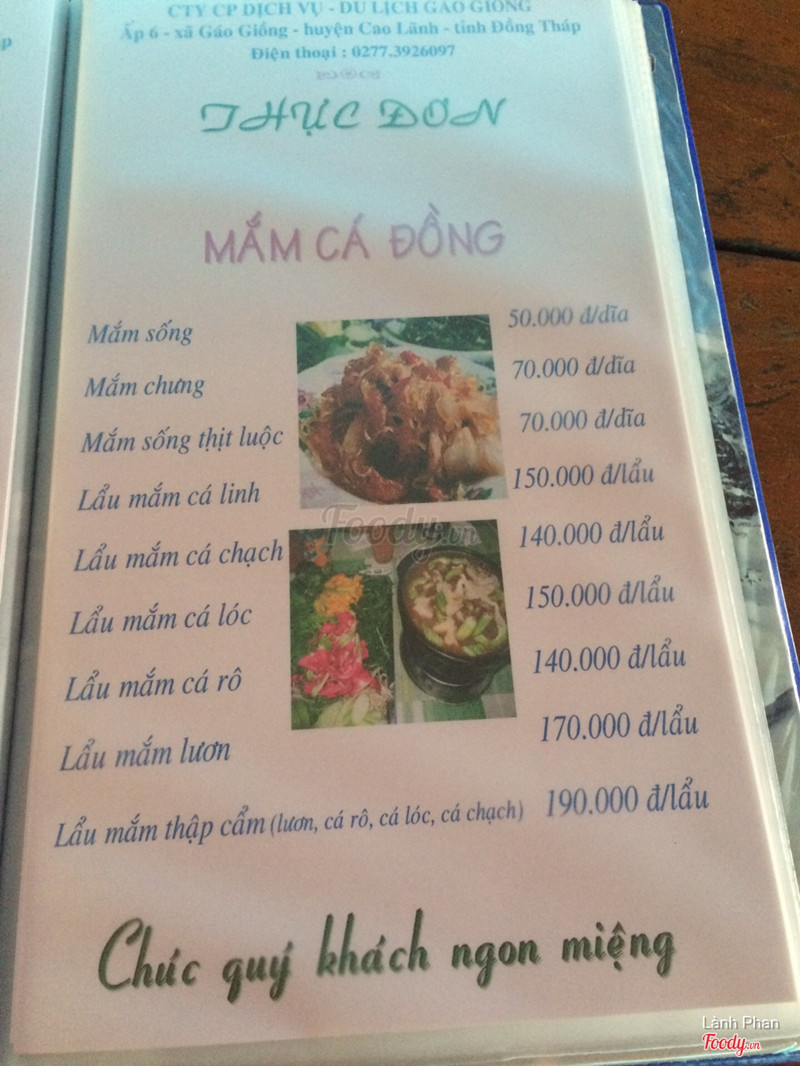 CTY CP DỊCH VỤ - DU LỊCH GÁO GIỒNG
Ấp 6 - xã Gáo Giồng - huyện Cao Lãnh - tỉnh Đồng Tháp
Điện thoại : 0277.3926097
THỰC ĐƠN
MẮM CÁ ĐỒNG
Mắm sống 50.000 đ/dĩa
Mắm chưng 70.000 đ/dĩa
Mắm sống thịt luộc 70.000 đ/dĩa
Lẩu mắm cá linh 150.000 đ/lẩu
Lẩu mắm cá chạch 140.000 đ/lẩu
Lẩu mắm cá lóc 150.000 đ/lẩu
Lẩu mắm cá rô 140.000 đ/lẩu
Lẩu mắm lươn 170.000 đ/lẩu
Lẩu mắm thập cẩm (lươn, cá rô, cá lóc, cá chạch) 190.000 đ/lẩu
Chúc quý khách ngon miệng
Foody.vn
Lành Phan
Foody.vn